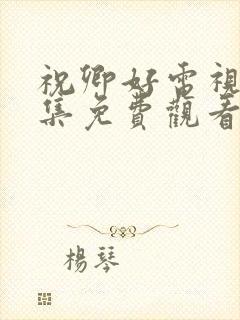 祝卿好電視
集免費觀看
楊琴